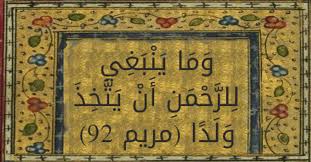 وَمَا يَنْبَغِي
للرَّحْمَنِ أَنْ يَتَّخِذَ
وَلَدًا (مريم 92)